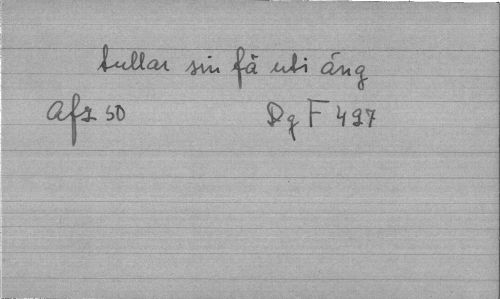 tullar sin fä uti äng
Afz 50 Dg F 497